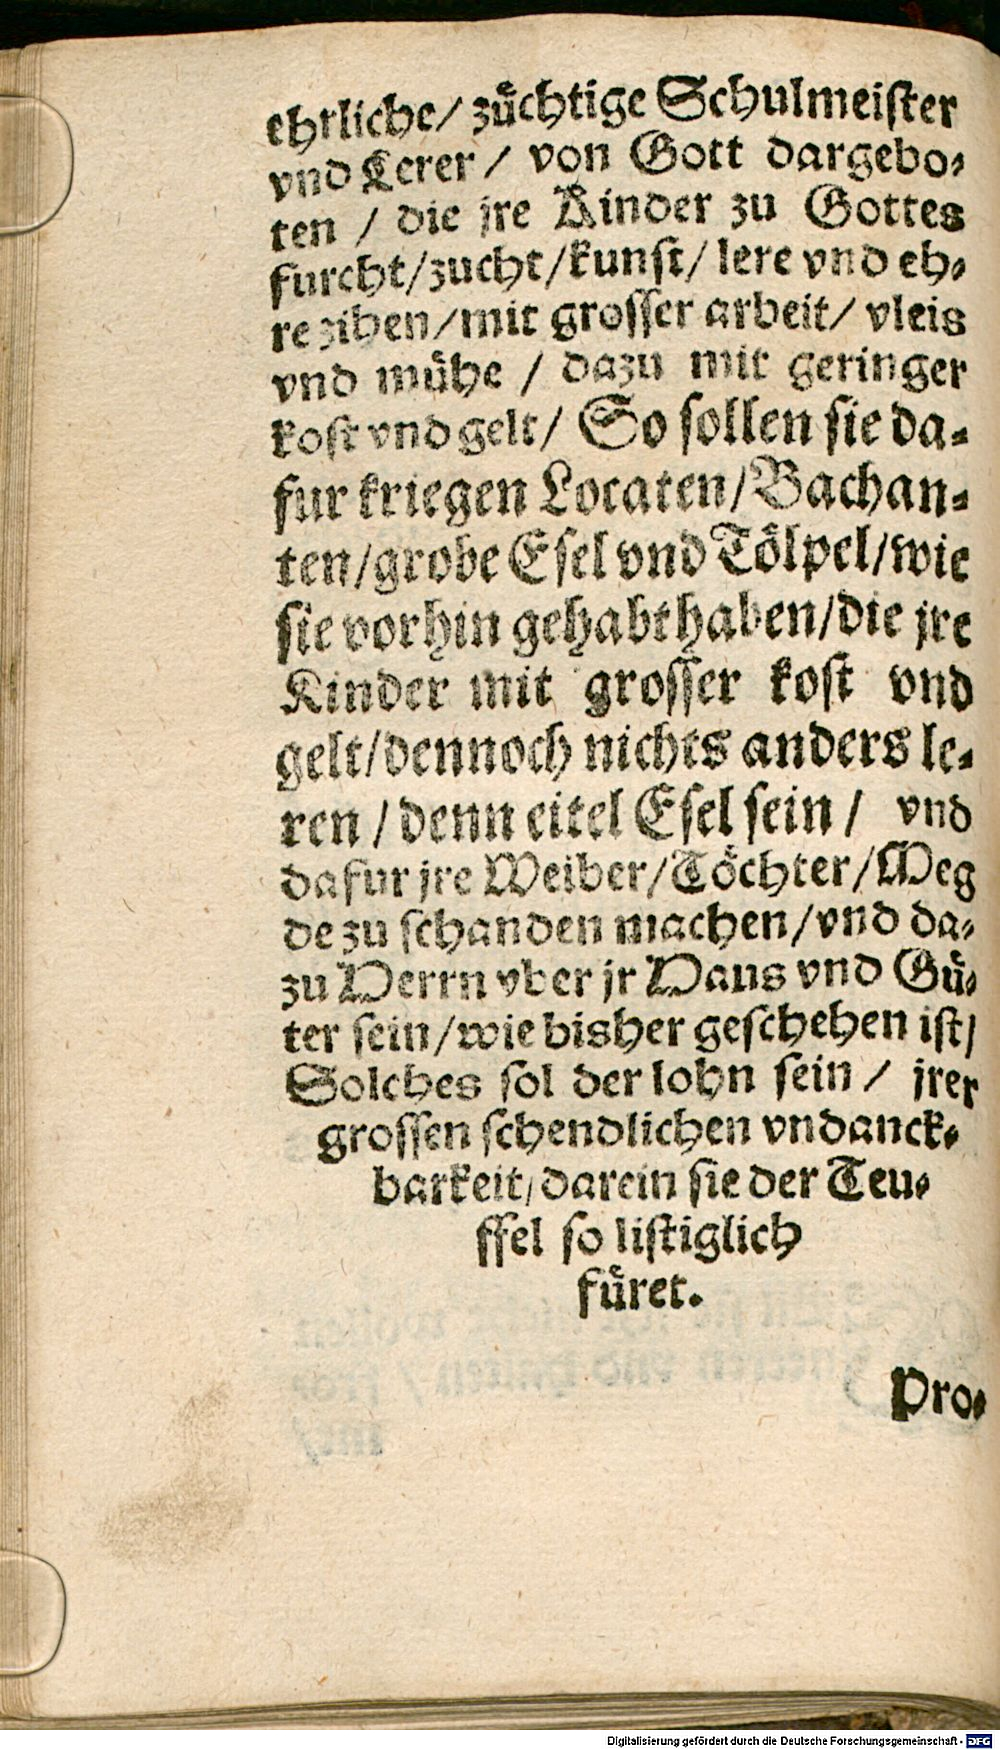 ehrliche/ zuͤchtige Schulmeister
vnd Lerer / von Gott dargebo⸗
ten / die jre Kinder zu Gottes
furcht/zucht/kunst/ lere vnd eh⸗
re zihen/mit grosser arbeit/ vleis
vnd muͤhe / dazu mit geringer
kost vnd gelt/ So sollen sie da⸗
fur kriegen Locaten/Bachan⸗
ten/grobe Esel vnd Toͤlpel/wie
sie vorhin gehabt haben/die jre
Kinder mit grosser kost vnd
gelt/dennoch nichts anders le⸗
ren / denn eitel Esel sein / vnd
dafur jre Weiber/Toͤchter/Meg
de zu schanden machen/vnd da⸗
zu Herrn vber jr Haus vnd Guͤ⸗
ter sein/wie bisher geschehen ist/
Solches sol der lohn sein / jrer
grossen schendlichen vndanck⸗
barkeit/darein sie der Teu⸗
ffel so listiglich
fuͤret.
Pro⸗
Digitalisierung gefördert durch die Deutsche Forschungsgemeinschaft - DFG